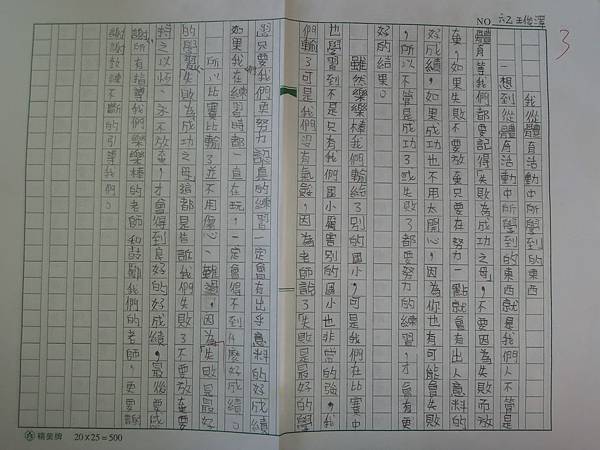 NO. 六乙 王俊澤
3
我從體育活動中所學到的東西
一想到從體育活動中所學到的東西就是我們人不管是
體育等我們都要記得「失敗為成功之母」,不要因為失敗而放
棄,如果失敗不要放棄只要在努力一點就會有出人意料的
好成績,如果成功也不用太開心,因為你也有可能會失敗
,所以不管是成功了或失敗了都要努力的練習,才會有更
好的結果。
雖然樂樂棒我們輸給了別的國小,可是我們在比賽中
也學習到不是只有我們國小厲害別的國小也非常的強,我
們輸了可是我們沒有氣餒,因為老師說了「失敗是最好的學
習只要我們更努力認真的練習一定會有出乎意料的好成績
如果我在練習時都一直在玩,一定會得不到什麼好成績。
所以比賽比輸了並不用傷心、難過,因為失敗是最好
的學習「失敗為成功之母」這都是告訴我們失敗了不要放棄要
持之以恆、永不放棄,才會得到良好的好成績,最後要感
謝所有指導我們樂樂棒的老師和鼓勵我們的老師,更要謝
謝教練不斷的引導我們。
精衛牌 20×25=500